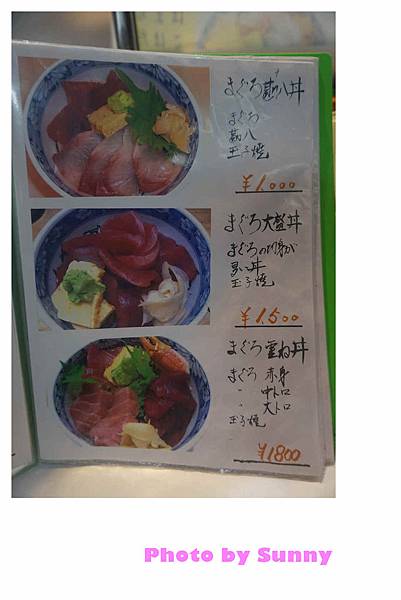 まぐろ勘八丼
まぐろ
勘八
玉子焼
¥1.000
まぐろ大盛丼
まぐろの
丼
玉子焼
¥1.500
まぐろ重ね丼
まぐろ 赤身
〃 中トロ
〃 大トロ
玉子焼
¥1800
Photo by Sunny